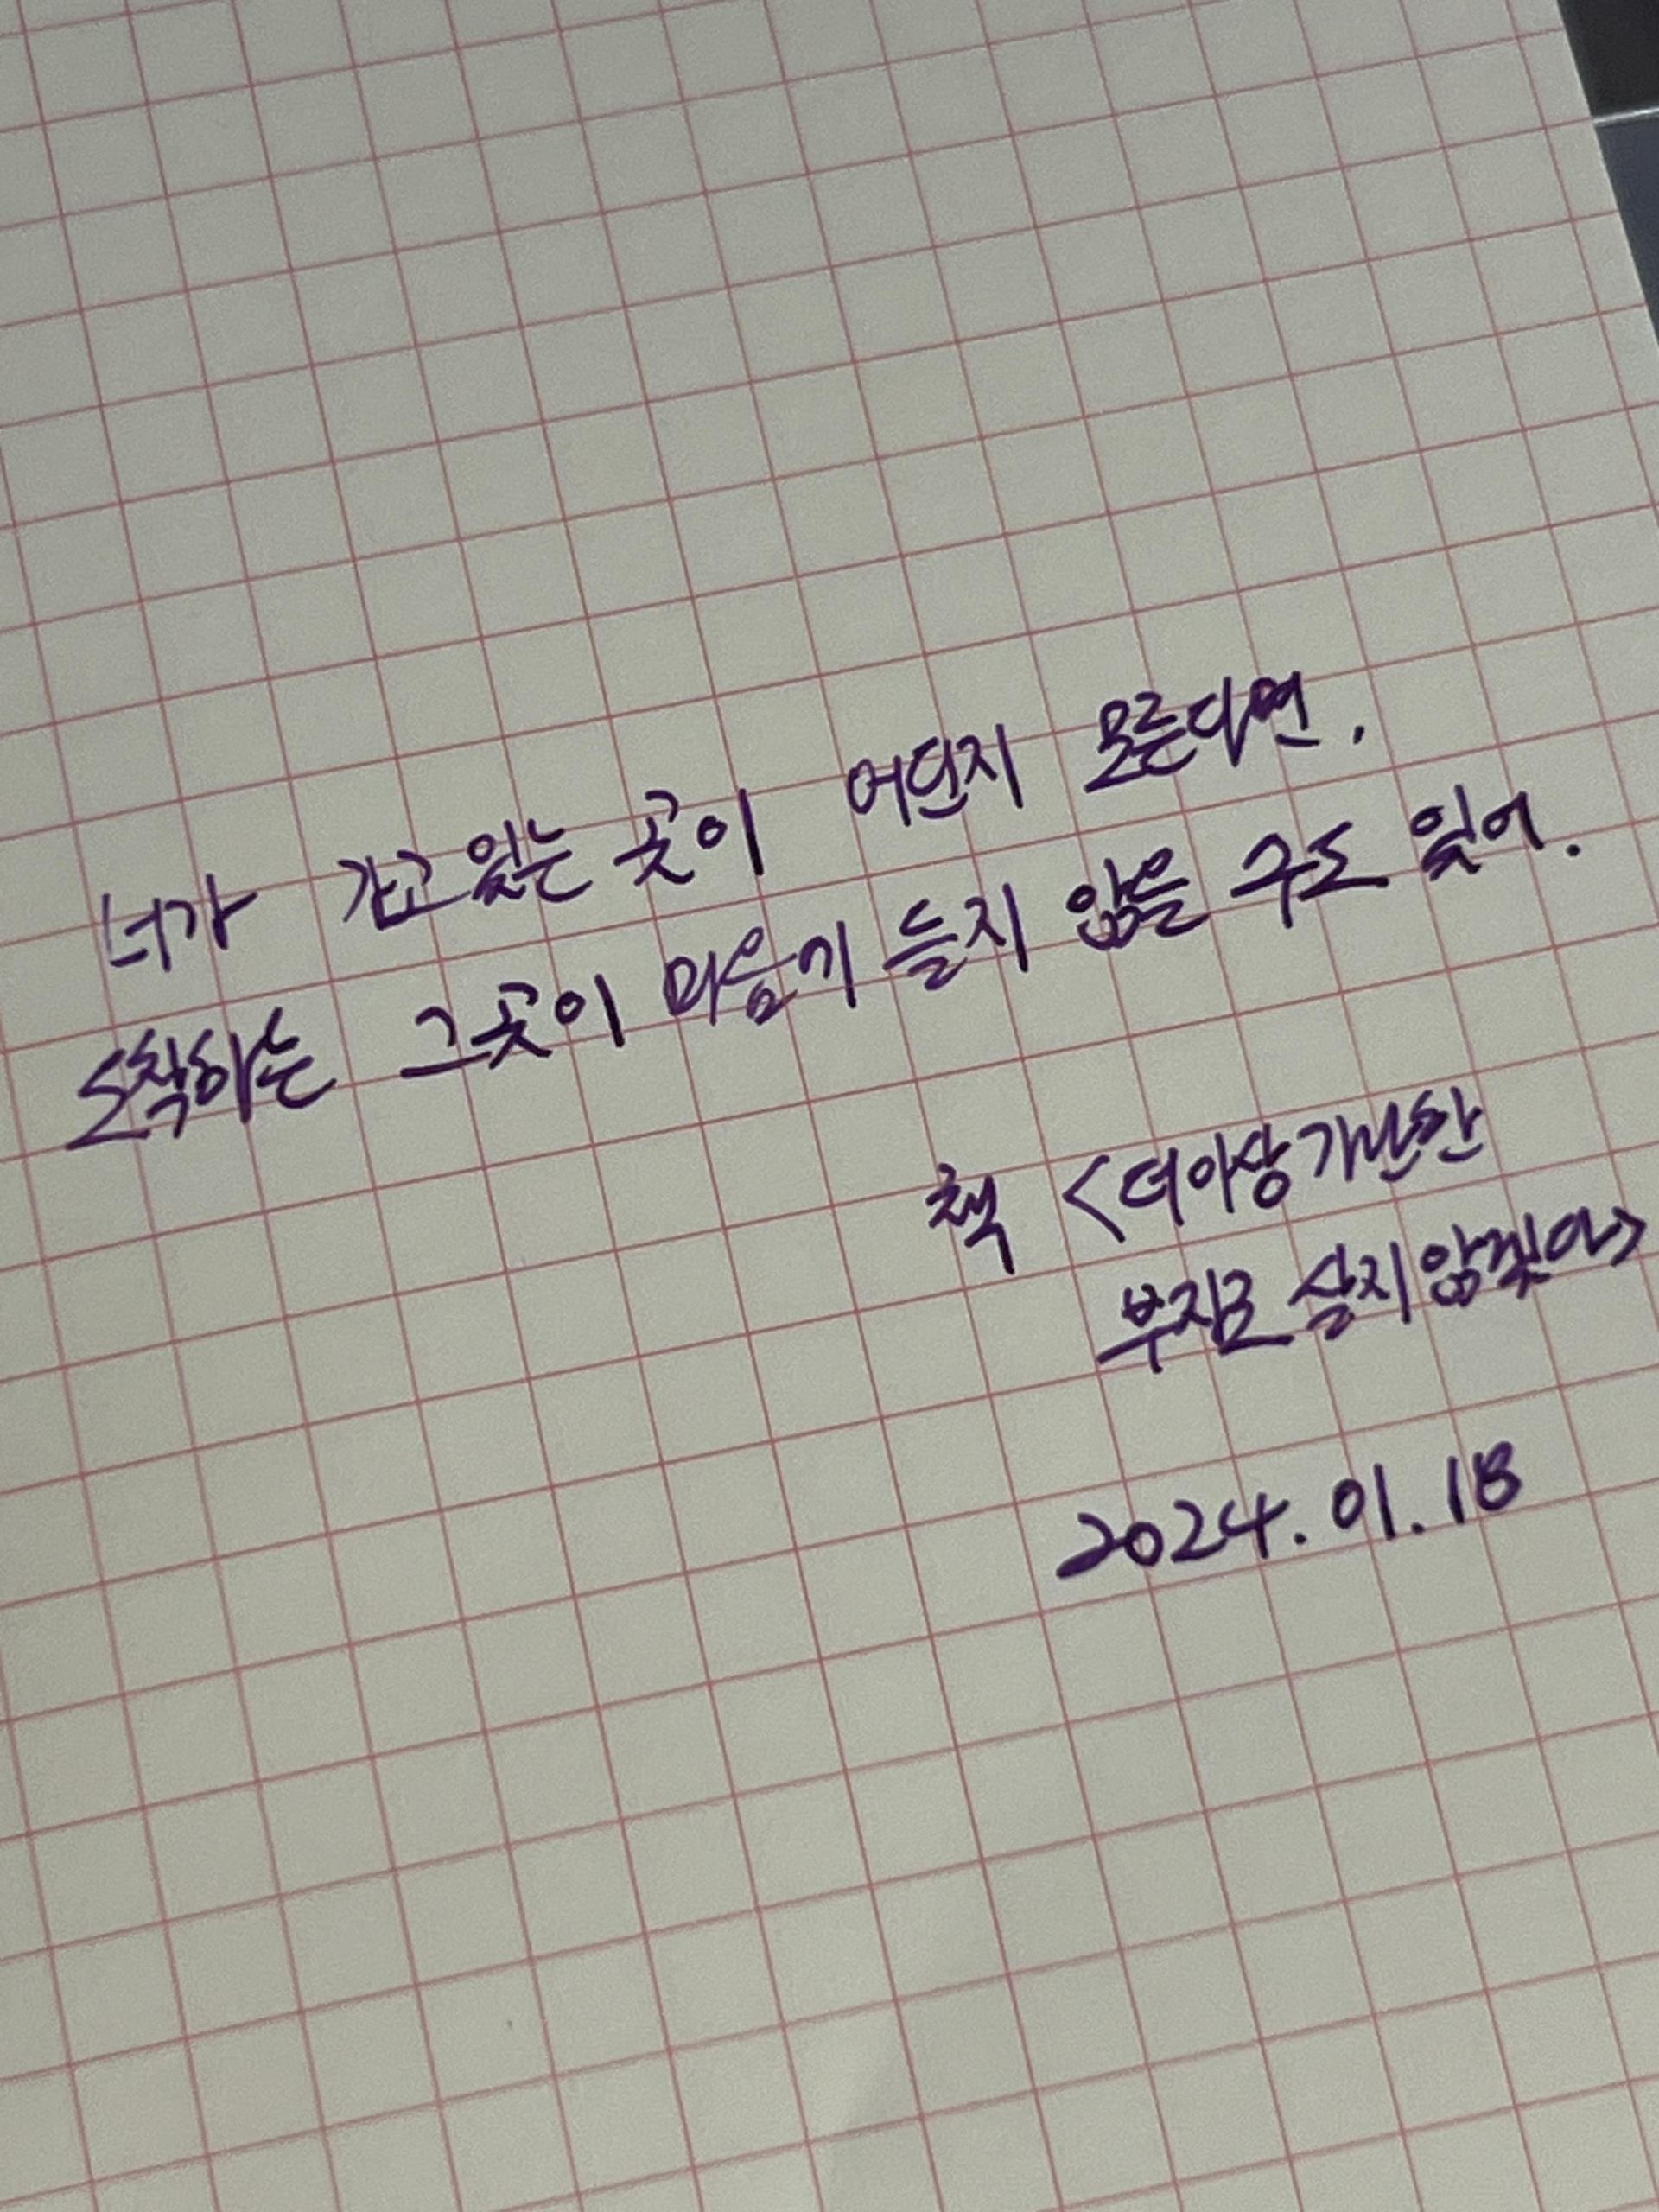 너가 가고 있는 곳이 어딘지 모른다면.
도착하는 그곳이 마음에 들지 않을 수도 있어.
책 <더이상 가난한
부자로 살지 않겠어>
2024.01.18